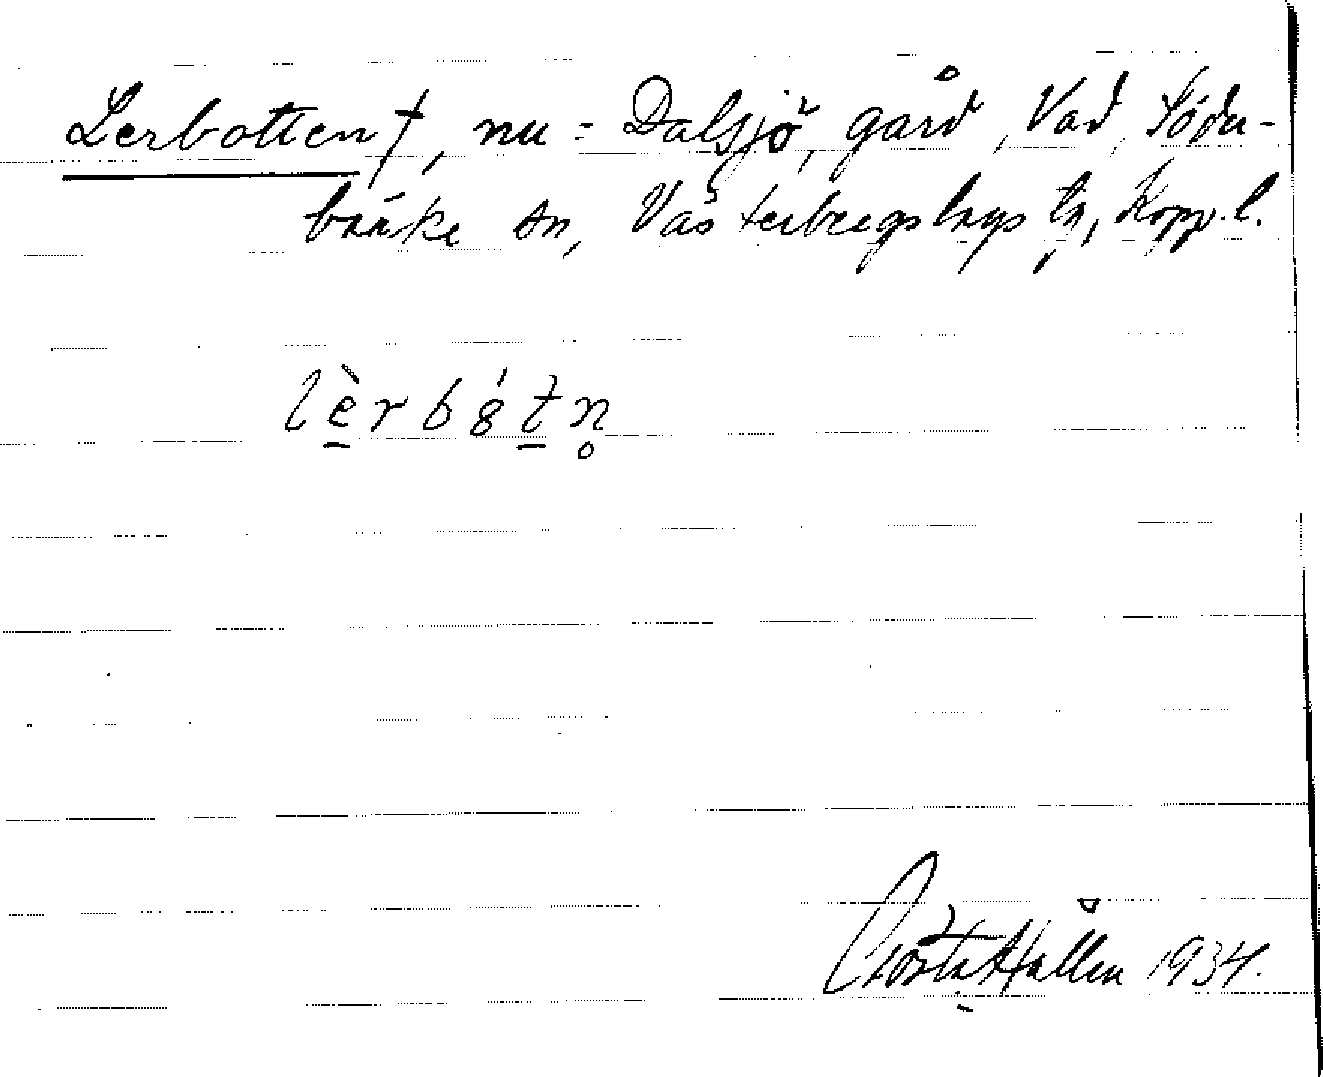 Lerbotten †, nu = Dalsjö, gård, Vad, Söder-
bärke sn, Västerbergslags tg, Kopp. l.
lèrbótn
Gösta Hallén 1934.